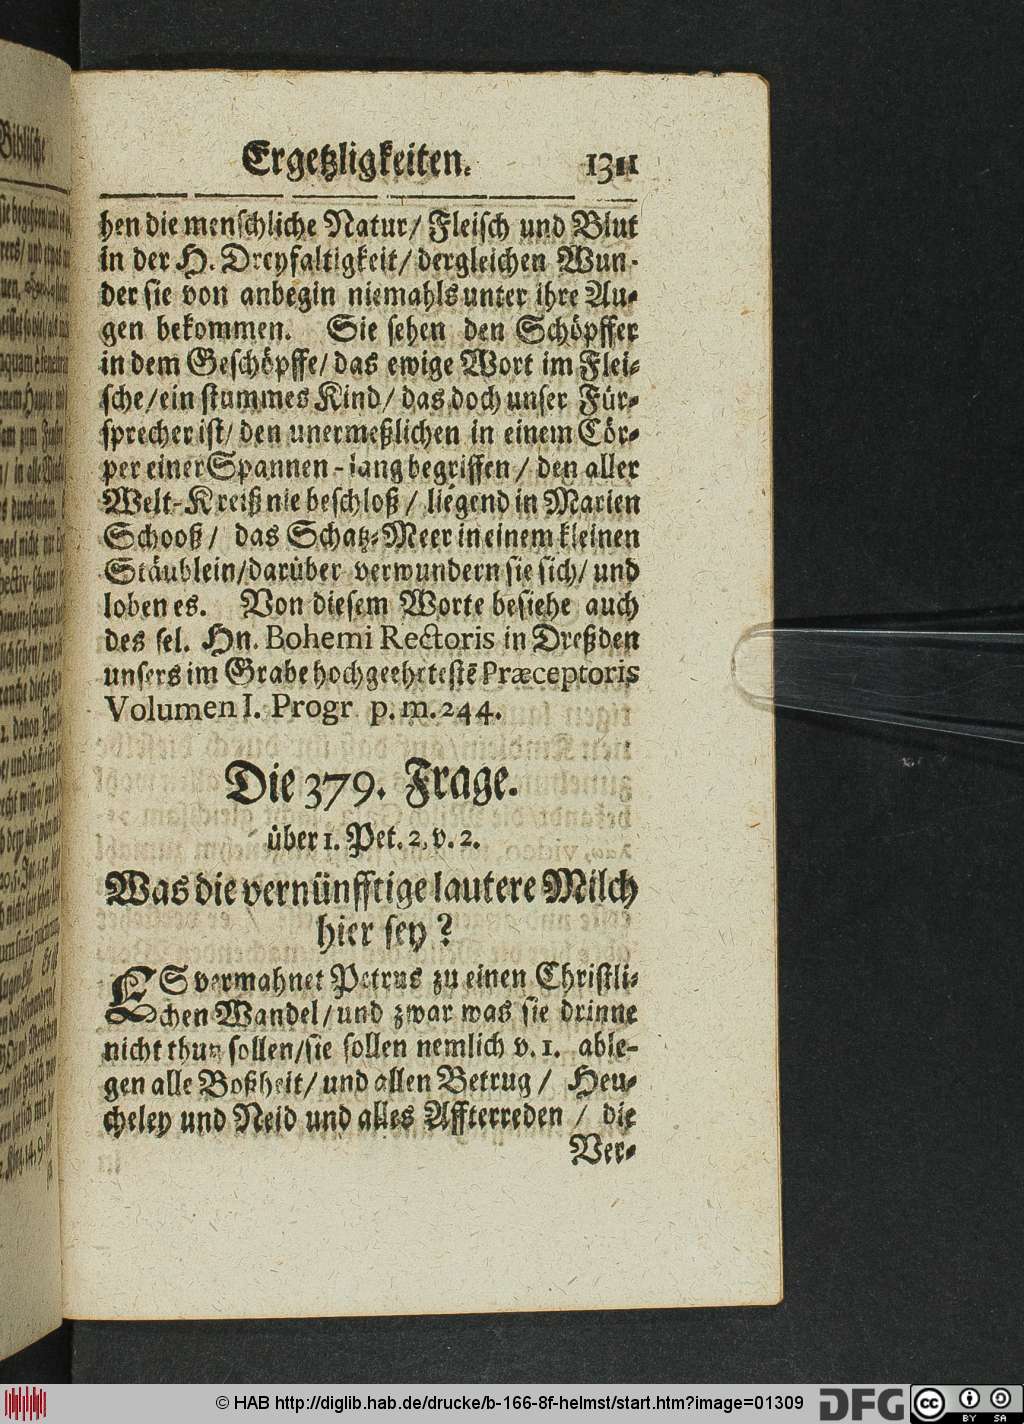 Ergetzligkeiten. 1311
hen die menschliche Natur/ Fleisch und Blut
in der H. Dreyfaltigkeit/ dergleichen Wun-
der sie von anbegin niemahls unter ihre Au-
gen bekommen. Sie sehen den Schöpffer
in dem Geschöpffe/ das ewige Wort im Flei-
sche/ ein stummes Kind/ das doch unser Für-
sprecher ist/ den unermeßlichen in einem Cör-
per einer Spannen-lang begriffen/ den aller
Welt-Kreiß nie beschloß/ liegend in Marien
Schooß/ das Schatz-Meer in einem kleinen
Stäublein/ darüber verwundern sie sich/ und
loben es. Von diesem Worte besiehe auch
des sel. Hn. Bohemi Rectoris in Dreßden
unsers im Grabe hochgeehrtestē Præceptoris
Volumen I. Progr p. m. 244.
Die 379. Frage.
über 1. Pet. 2, v. 2.
Was die vernünfftige lautere Milch
hier sey?
ES vermahnet Petrus zu einen Christli-
chen Wandel/ und zwar was sie drinne
nicht thun sollen/ sie sollen nemlich v. 1. able-
gen alle Boßheit/ und allen Betrug/ Heu-
cheley und Neid und alles Affterreden/ die
Ver-
© HAB http://diglib.hab.de/drucke/b-166-8f-helmst/start.htm?image=01309
DFG
cc BY SA